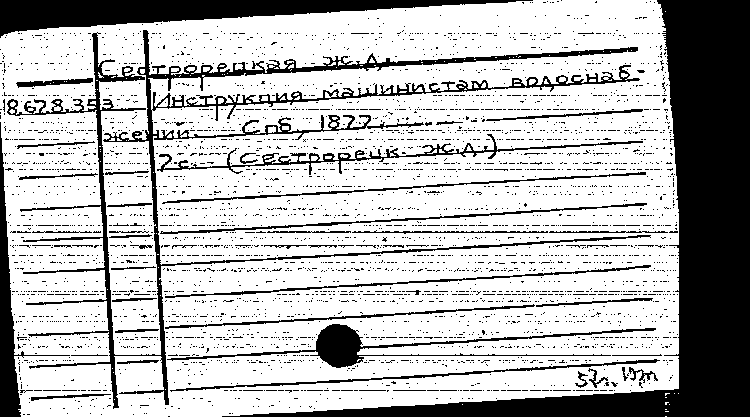 Сестрорецкая ж.д.
18.678.353 Инструкция машинистам водоснаб-
жений. Спб, 1877.
7с. (Сестрорецк. ж.д.)